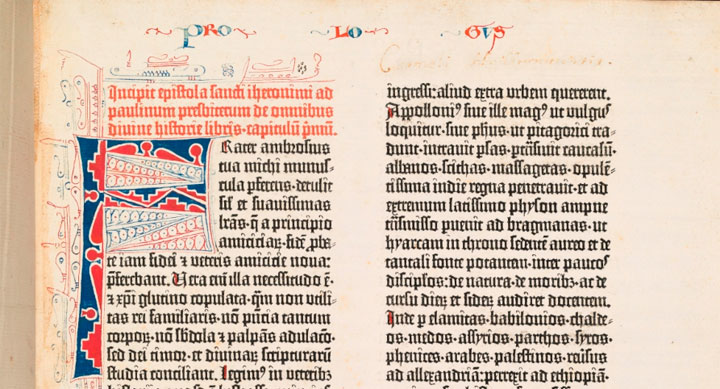 PRO LO GUS
Incipit epistola sancti iheronimi ad
paulinum presbiterum de omnibus
divine historie libris. capitulū p̄mū.
Frater ambrosius
tua michi munus-
cula p̄ferens. detulit
sil' et suavissimas
lr̄as. q̄ a principio
amiciciaꝝ. fidē p̄ba-
te iam fidei ⁊ veteris amicicie nova:
p̄ferebant. Vera eni illa necessitudo ē.
⁊ xp̄i glutino copulata. q̄m non utili-
tas rei familiaris. nō p̄ntia tantum
corpoꝝ. nō sb̄dola ⁊ palpās adulacō.
sed dei timor. et divinaꝝ scripturarū
studia conciliant. Legimꝰ in veteribꝫ
ingressi: aliud extra urbem quererent.
Appolloniꝰ sive ille magꝰ ut vulgꝰ
loquitur. sive ph̄us. ut pitagorici tra-
dunt. intravit p̄sas. p̄trāsivit caucasū.
albanos. scithas. massagetas. opulē-
tissima indie regna penetravit. et ad
extremum latissimo physon ampne
trāsmisso puenit ad bragmanas. ut
hyarcam in throno sedentē aureo et de
tantali fonte potantem. inter paucos
discip̄los: de natura. de moribꝫ. ac de
cursu dieꝝ et sideꝝ audiret docentem.
Inde p elamitas. babilonios. chalde-
os. medos. assyrios. parthos. syros.
phenices. arabes. palestinos. rēūsus
ad allexandriā: perrexit ad ethiopiā